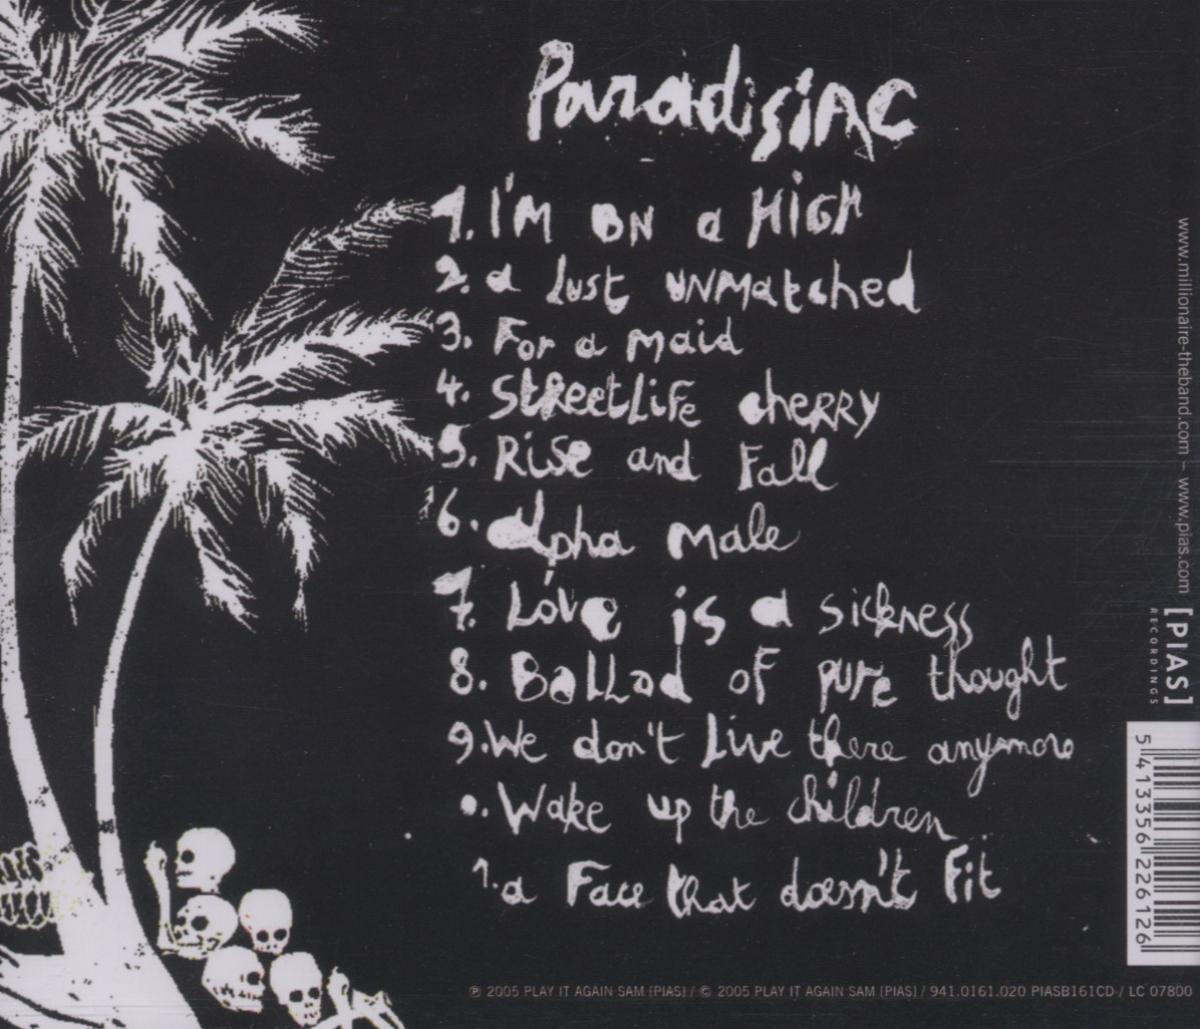 ParadisiAC
1. I'M ON a HiGH
2. a Lust UNMatched
3. For a maid
4. StReetLiFe cheRRY
5. RiSe and Fall
6. alpha male
7. Love is a sickness
8. BaLLad oF pure thought
9. We don't Live there anymore
0. Wake up the children
1. a Face that doesn't Fit
www.millionaire-theband.com – www.pias.com
[PIAS]
RECORDINGS
5 413356 226126
℗ 2005 PLAY IT AGAIN SAM [PIAS] / © 2005 PLAY IT AGAIN SAM [PIAS] / 941.0161.020 PIASB161CD / LC 07800